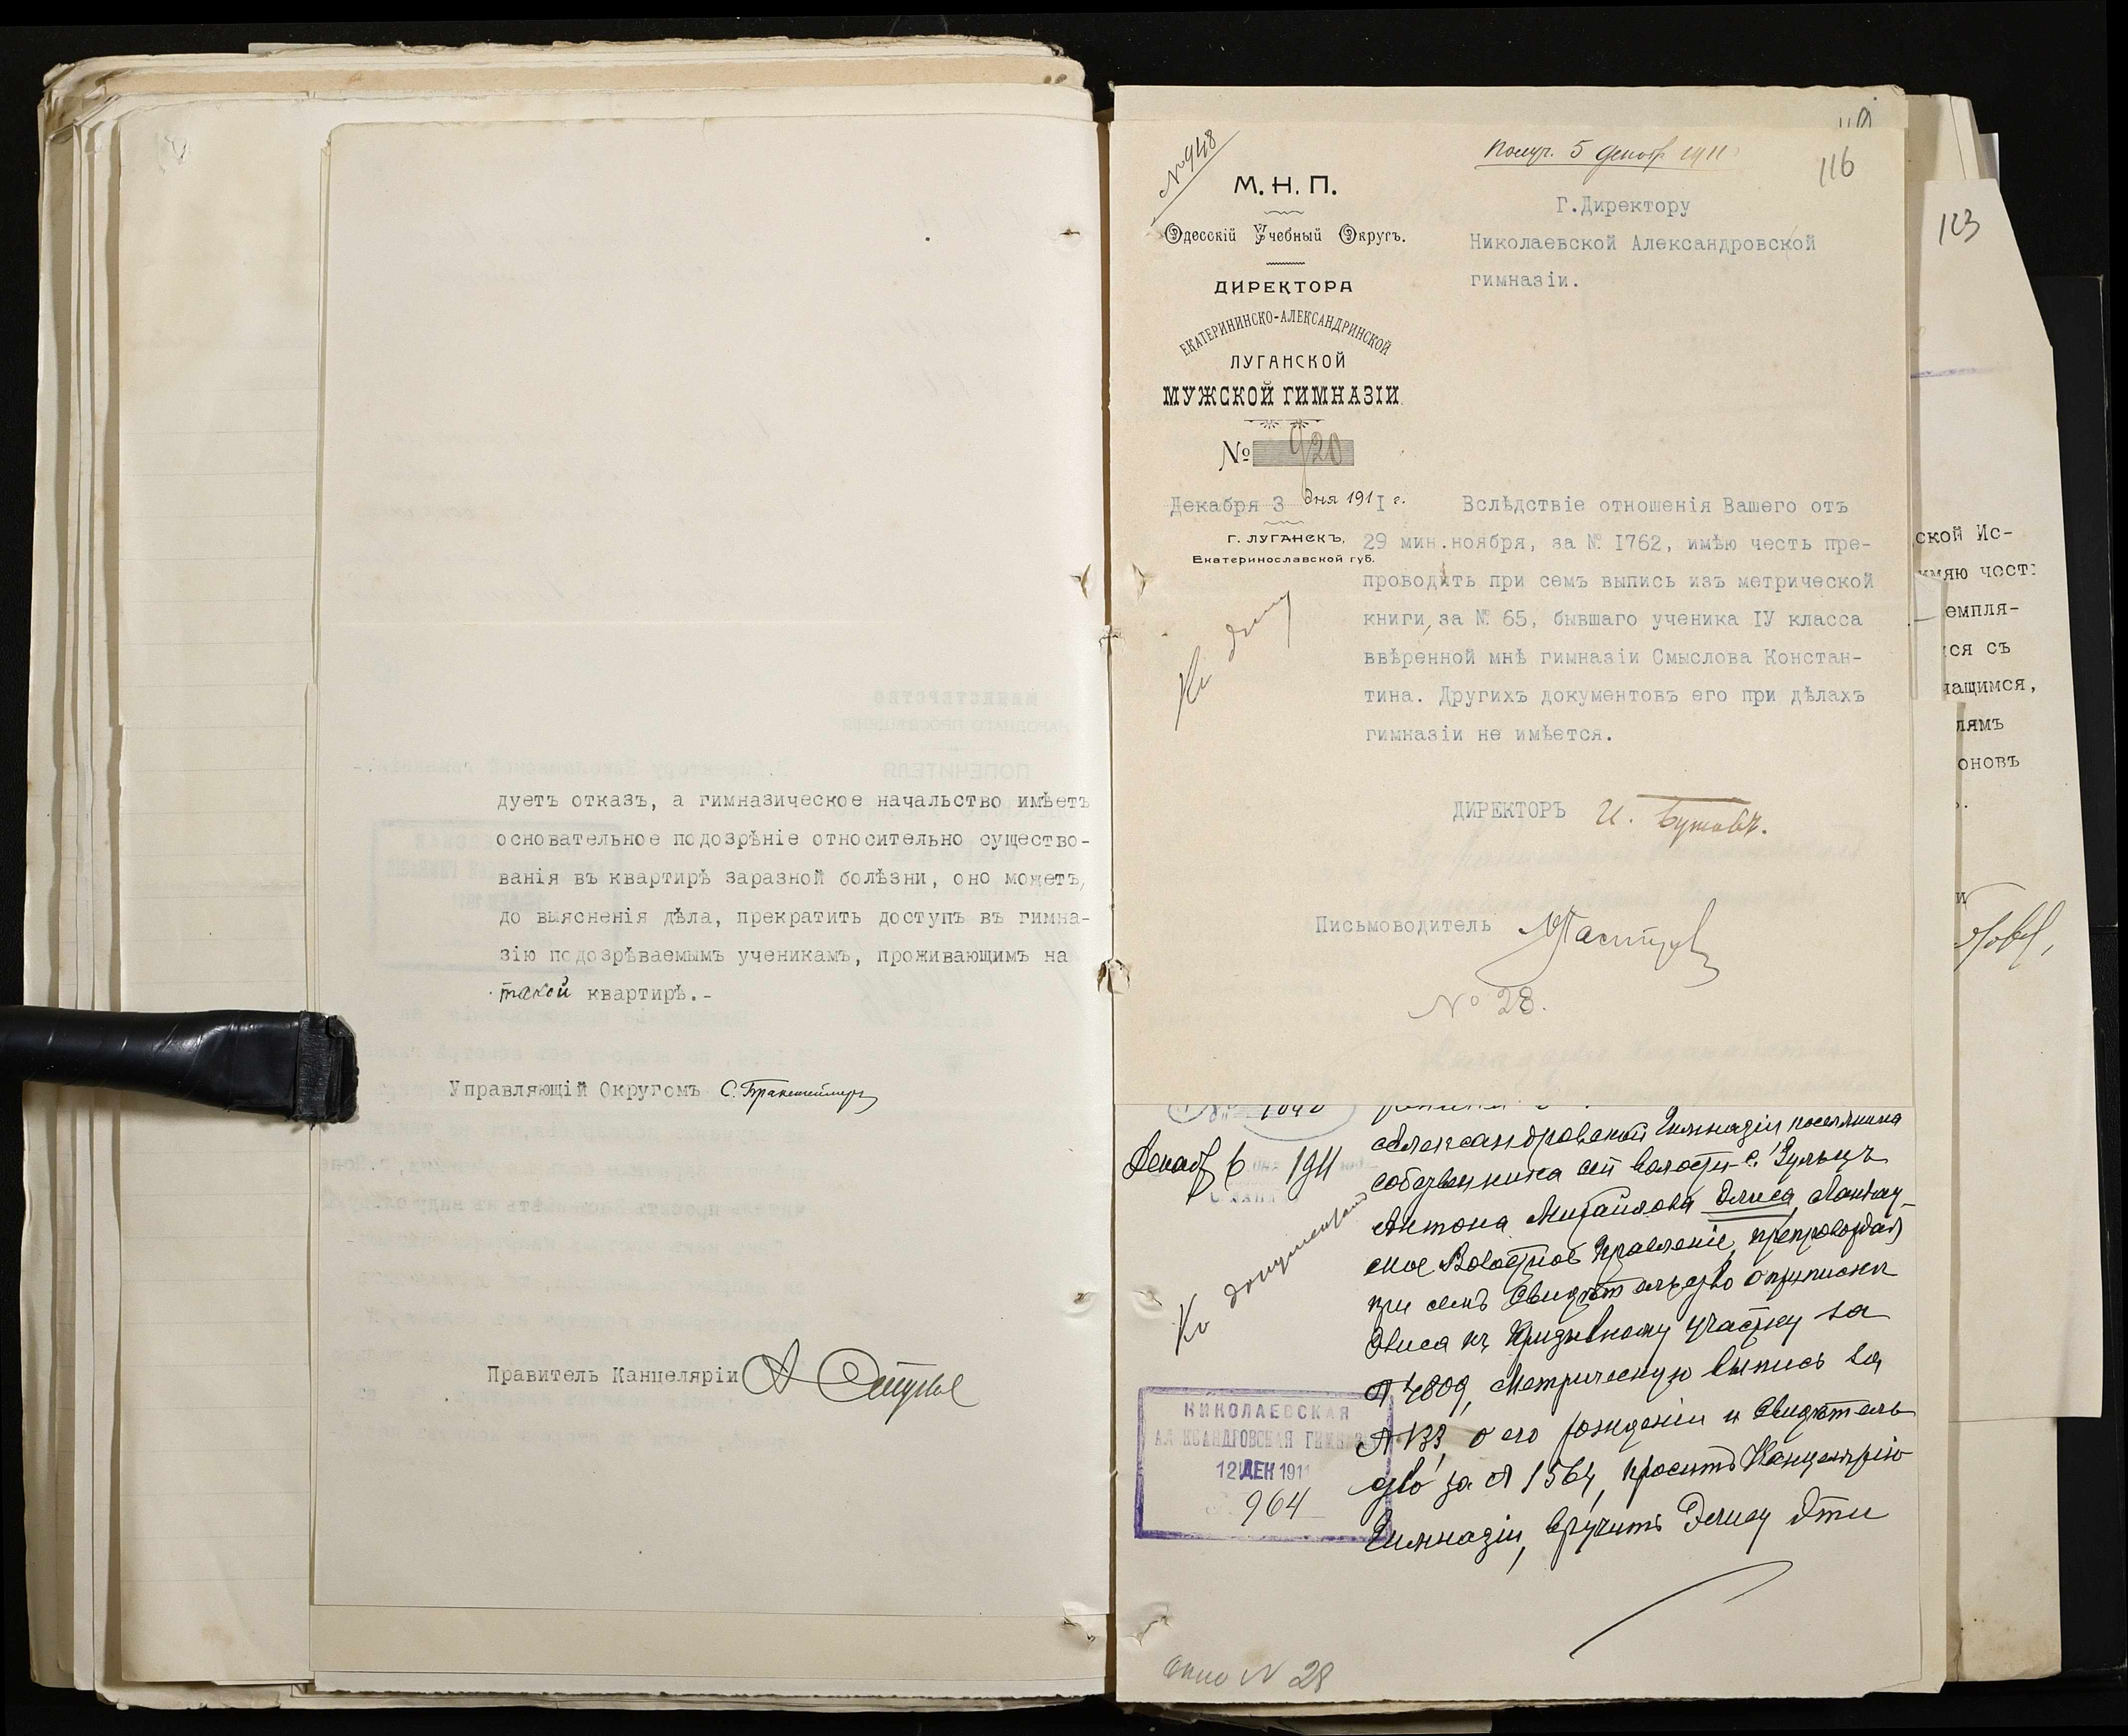 дуетъ отказъ, а гимназическое начальство имѣетъ
основательное подозрѣніе относительно существо-
ванія въ квартирѣ заразной болѣзни, оно можетъ,
до выясненія дѣла, прекратить доступъ въ гимна-
зію подозрѣваемымъ ученикамъ, проживающимъ на
такой квартирѣ.-
Управляющій Округомъ
Правитель Канцеляріи
№ 948
Получ. 5 декабр 1911
116
М. Н. П.
Одесскій Учебный Округъ.
ДИРЕКТОРА
ЕКАТЕРИНИНСКО-АЛЕКСАНДРИНСКОЙ
ЛУГАНСКОЙ
МУЖСКОЙ ГИМНАЗІИ
№ 920
Декабря 3 дня 1911 г.
г. ЛУГАНСКЪ,
Екатеринославской губ.
Г.Директору
Николаевской Александровской
гимназіи.
Вслѣдствіе отношенія Вашего отъ
29 мин.ноября, за № I762, имѣю честь пре-
проводить при семъ выпись изъ метрической
книги, за № 65, бывшаго ученика IУ класса
ввѣренной мнѣ гимназіи Смыслова Констан-
тина. Другихъ документовъ его при дѣлахъ
гимназіи не имѣется.
Къ дѣлу
ДИРЕКТОРЪ И.
Письмоводитель
№ 28.
Декабр 6 1911
Александровской Гимназіи поселянина
собственника сей волости с.
Антона Михайлова Элиса,
ское Волостное Правленіе, препровождая
при семъ Свидѣтельство о припискѣ
Элиса къ Призывному участку за
№ 4809, Метрическую выпись за
№ 133, о его рожденіи и Свидѣтель
ство за № 1564, проситъ Канцелярію
Гимназіи, вручить Элису эти
Къ документамъ
НИКОЛАЕВСКАЯ
АЛЕКСАНДРОВСКАЯ ГИМНАЗІЯ
12 ДЕК 1911
964
№ 28
123
ской Ис-
имѣю чест
емпля-
ся съ
чащимся,
лямъ
оновъ